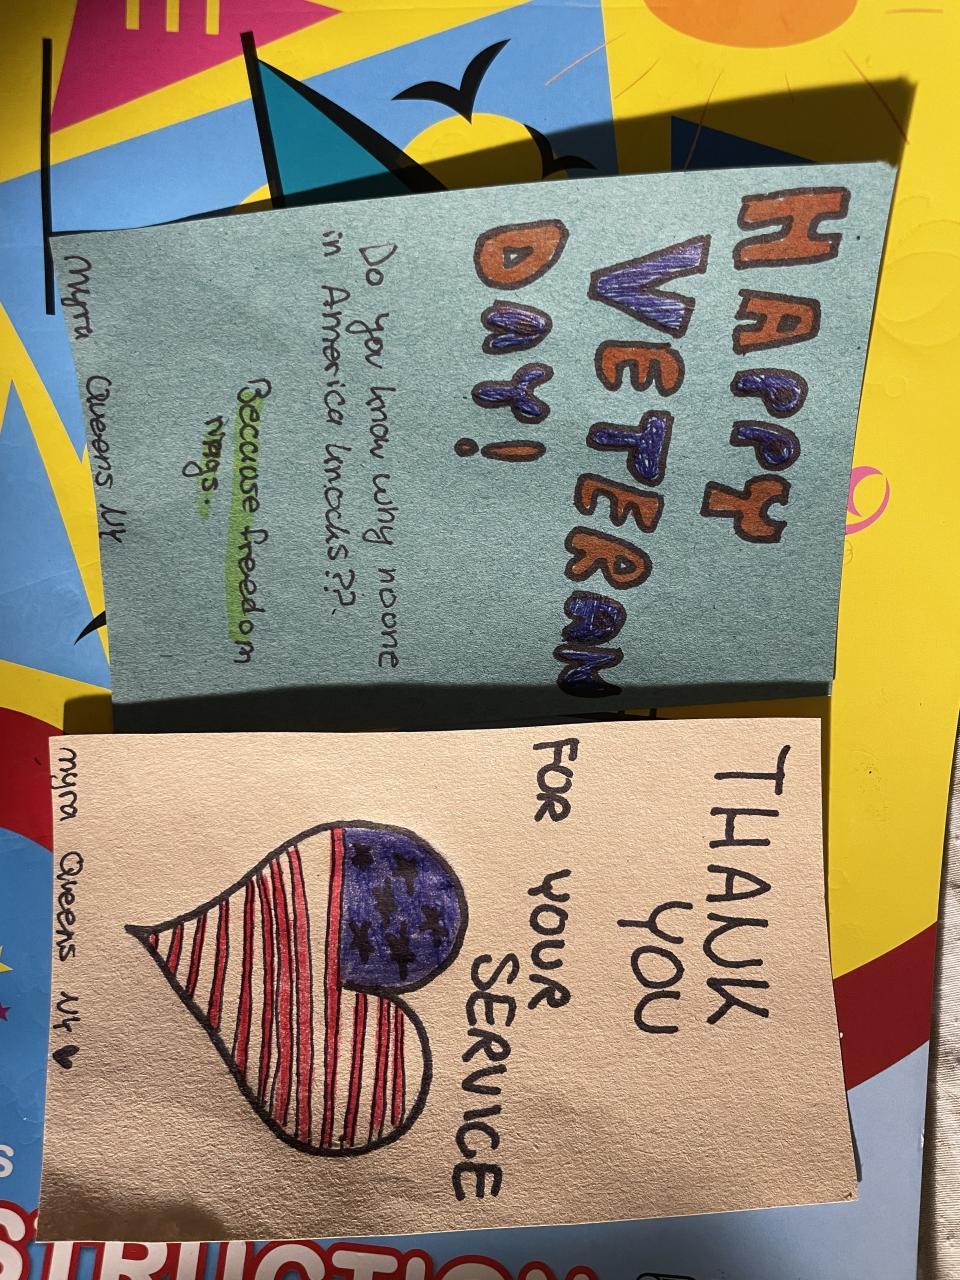 HAPPY
VETERAN
DAY!
Do you know why noone
in America knocks??
Because freedom
rings.
Myra Queens NY
THANK
YOU
FOR YOUR
SERVICE
myra Queens NY
STRUCTION